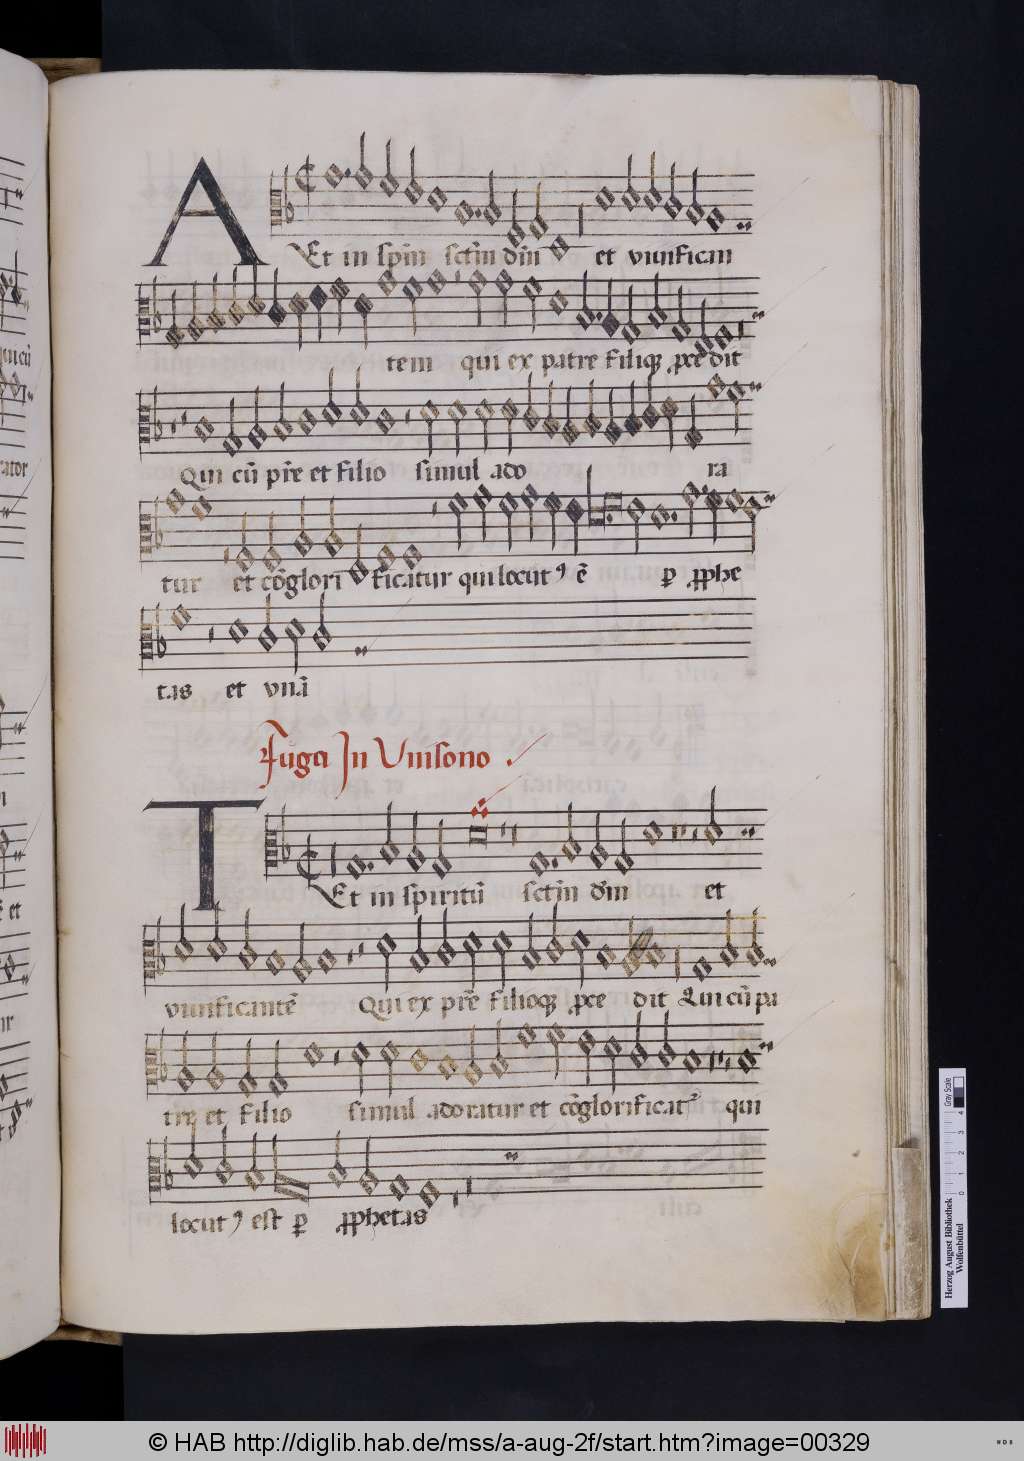 A
Et in spm̄ sctm̄ dm̄ et viuifican
tem qui ex patre filioqȝ ꝓcedit
Qui cū pr̄e et filio simul ado ra
tur et cōglori ficatur qui locutꝰ ē ꝑ ꝓphe
tas et vnā
Fuga In Vnisono .
T
Et in spiritū sctm̄ dm̄ et
viuificantē Qui ex pr̄e filioqȝ ꝓce dit Qui cū pa
tre et filio simul adoratur et cōglorificat᷑ qui
locutꝰ est ꝑ ꝓphetas
Gray Scale
0 1 2 3 4
Herzog August Bibliothek
Wolfenbüttel
© HAB http://diglib.hab.de/mss/a-aug-2f/start.htm?image=00329
WDB